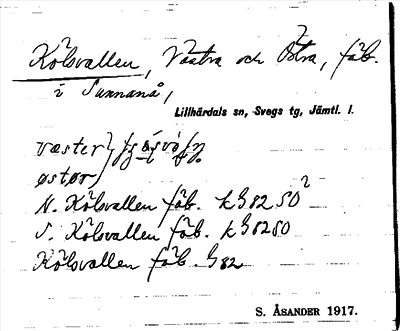 Kölsvallen, Västra och Östra, fäb.
i Sunnanå,
Lillhärdals sn, Svegs tg, Jämtl. l.
væster
øster
N. Kölsvallen fäb. k§ 82 50²
S. Kölsvallen fäb. k§ 82 80
Kölsvallen fäb. §82
S. ÅSANDER 1917.